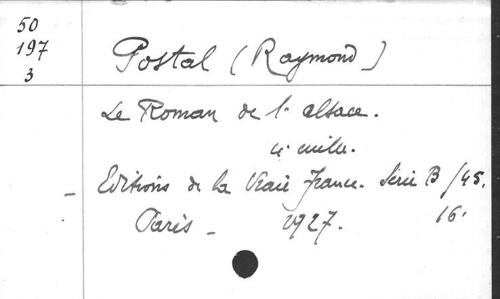 50
197
3
Postal (Raymond)
Le Roman de l'alsace.
4e mille.
Editions de la Vraie France. Série B/45.
Paris - 1927. 16.